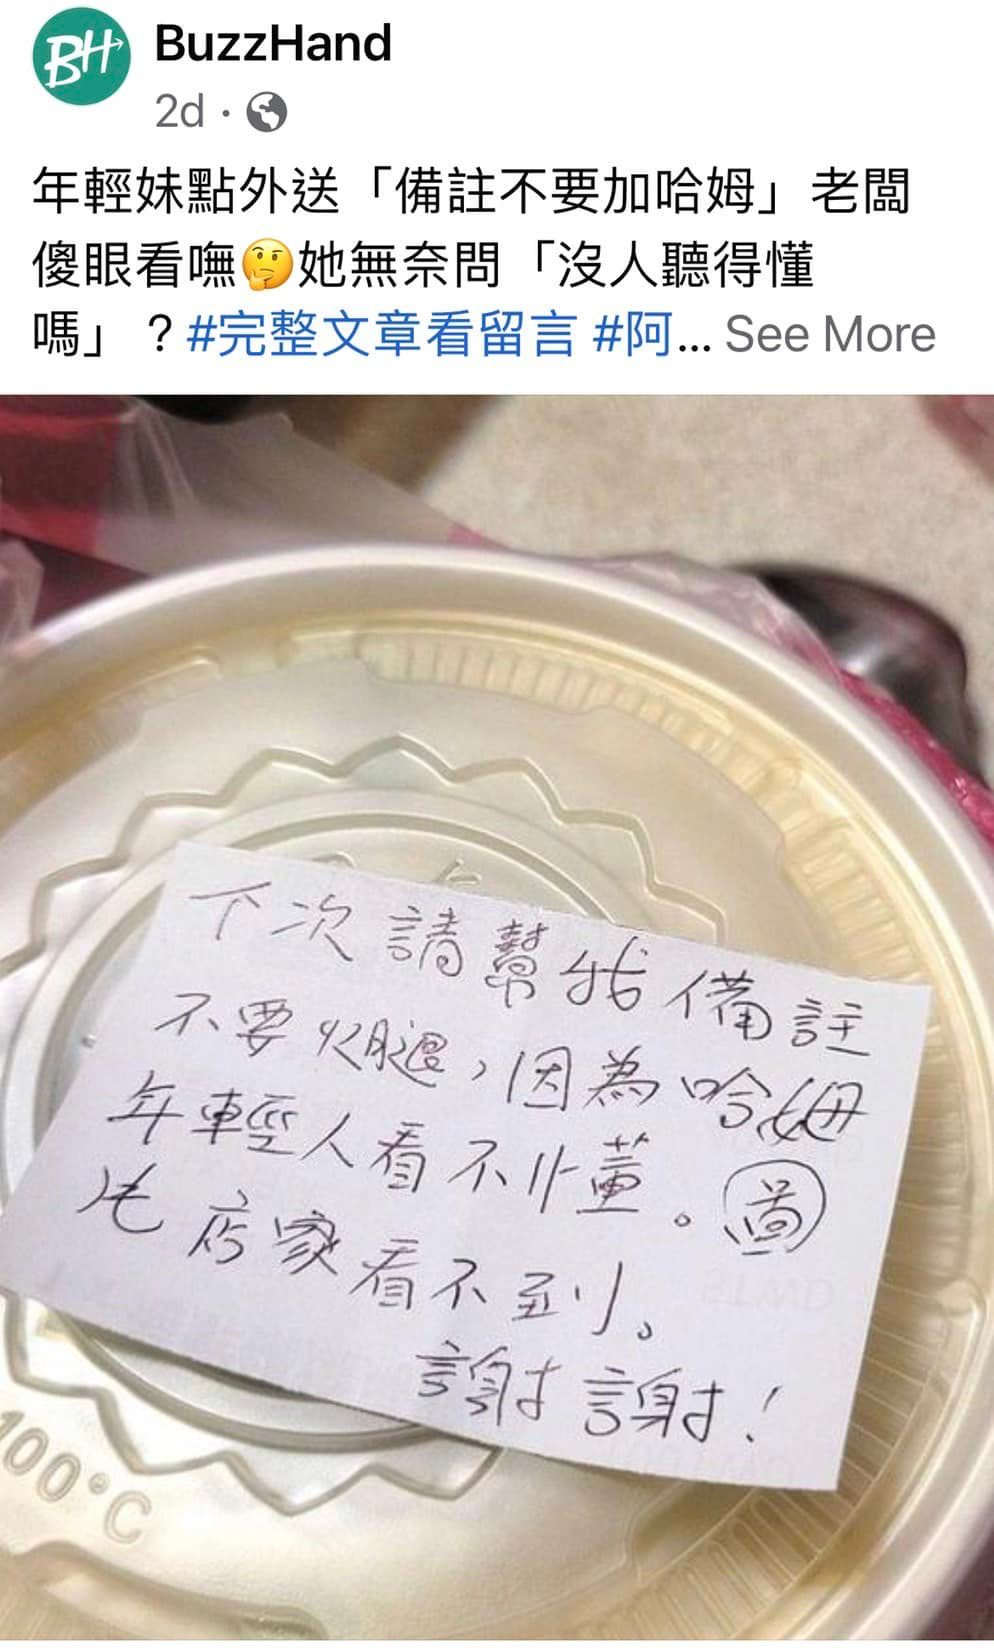 BH
BuzzHand
2d ·
年輕妹點外送「備註不要加哈姆」老闆
傻眼看嘸🤔她無奈問「沒人聽得懂
嗎」？#完整文章看留言 #阿... See More
下次請幫我備註
不要火腿，因為哈姆
年輕人看不懂。圖
也店家看不到。
謝謝！
100°C